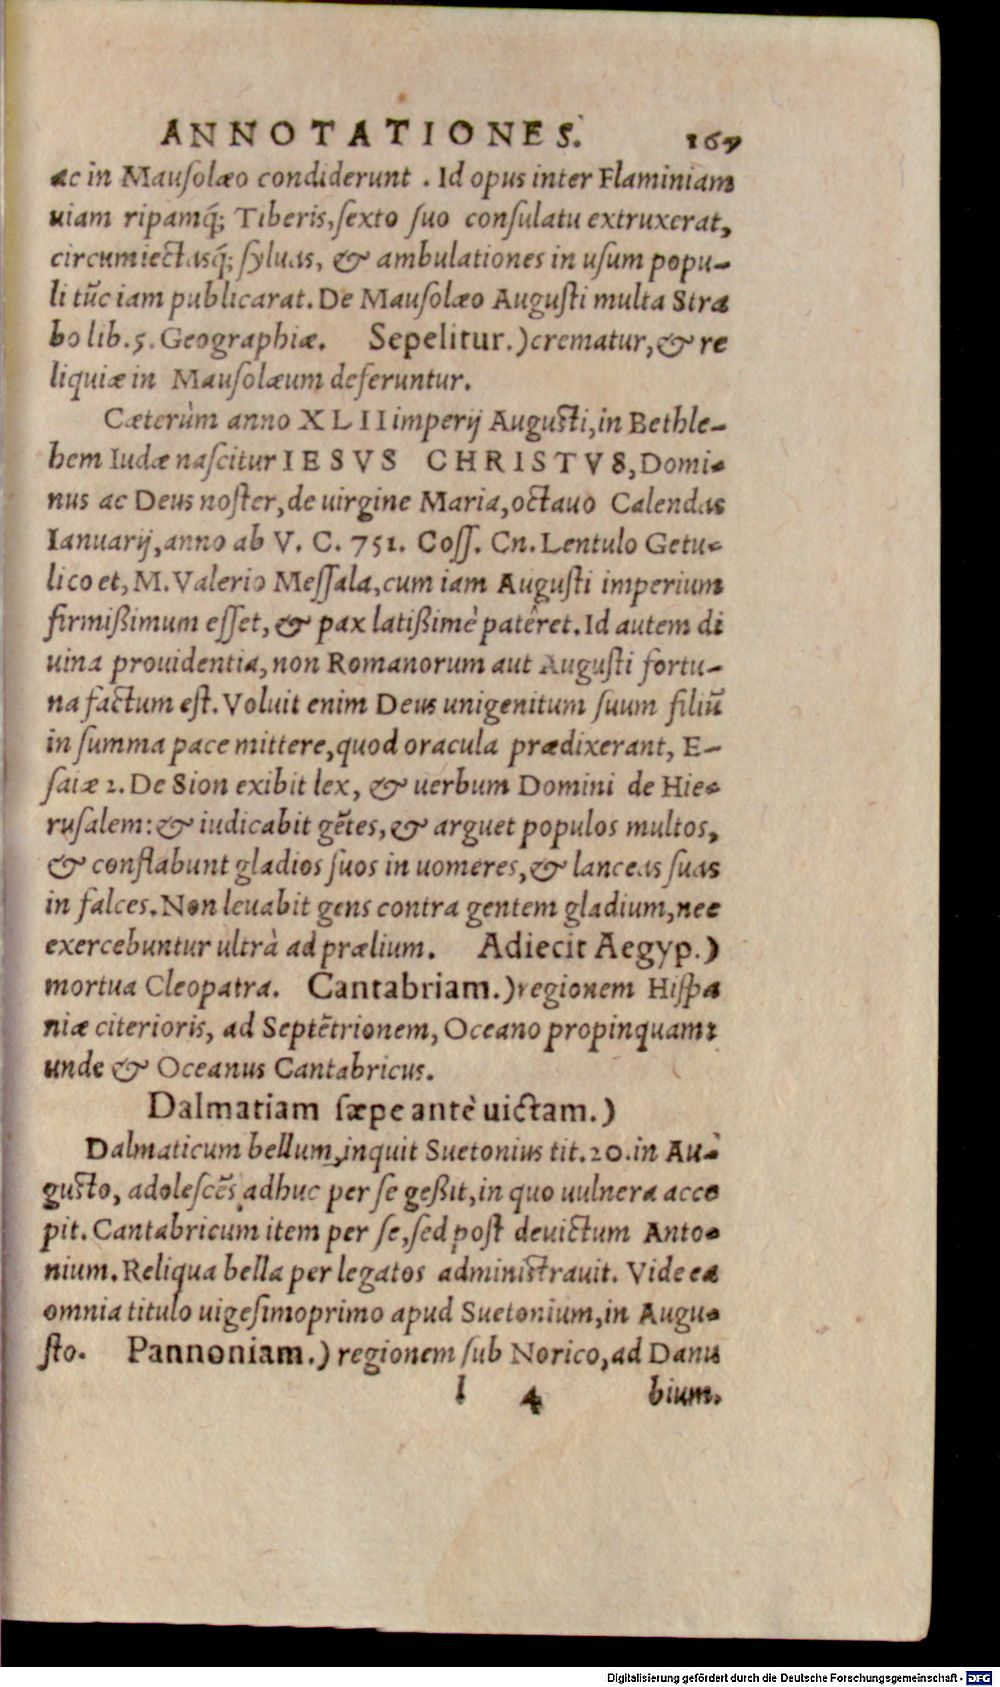 ANNOTATIONES. 169
ac in Mauſolæo condiderunt . Id opus inter Flaminiam
uiam ripamq́; Tiberis, ſexto ſuo conſulatu extruxerat,
circumiectasq́; ſyluas, & ambulationes in uſum popu-
li tūc iam publicarat. De Mauſolæo Auguſti multa Stra
bo lib. 5. Geographiæ. Sepelitur.) crematur, & re
liquiæ in Mauſolæum deferuntur.
Cæterùm anno XLII imperij Auguſti, in Bethle-
hem Iudæ naſcitur IESVS CHRISTVS, Domi-
nus ac Deus noſter, de uirgine Maria, octauo Calendas
Ianuarij, anno ab V. C. 751. Coſſ. Cn. Lentulo Getu-
lico et, M. Valerio Meſſala, cum iam Auguſti imperium
firmißimum eſſet, & pax latißimè patêret. Id autem di
uina prouidentia, non Romanorum aut Auguſti fortu-
na factum eſt. Voluit enim Deus unigenitum ſuum filiū
in ſumma pace mittere, quod oracula prædixerant, E-
ſaiæ 2. De Sion exibit lex, & uerbum Domini de Hie-
ruſalem: & iudicabit gētes, & arguet populos multos,
& conflabunt gladios ſuos in uomeres, & lanceas ſuas
in falces. Non leuabit gens contra gentem gladium, nec
exercebuntur ultrà ad prælium. Adiecit Aegyp.)
mortua Cleopatra. Cantabriam.) regionem Hiſpa
niæ citerioris, ad Septētrionem, Oceano propinquam:
unde & Oceanus Cantabricus.
Dalmatiam ſæpe antè uictam.)
Dalmaticum bellum, inquit Suetonius tit. 20. in Au-
guſto, adoleſcēs adhuc per ſe geßit, in quo uulnera acce
pit. Cantabricum item per ſe, ſed poſt deuictum Anto-
nium. Reliqua bella per legatos adminiſtrauit. Vide ea
omnia titulo uigeſimoprimo apud Suetonium, in Augu-
ſto. Pannoniam.) regionem ſub Norico, ad Danu
l 4 bium.
Digitalisierung gefördert durch die Deutsche Forschungsgemeinschaft - DFG